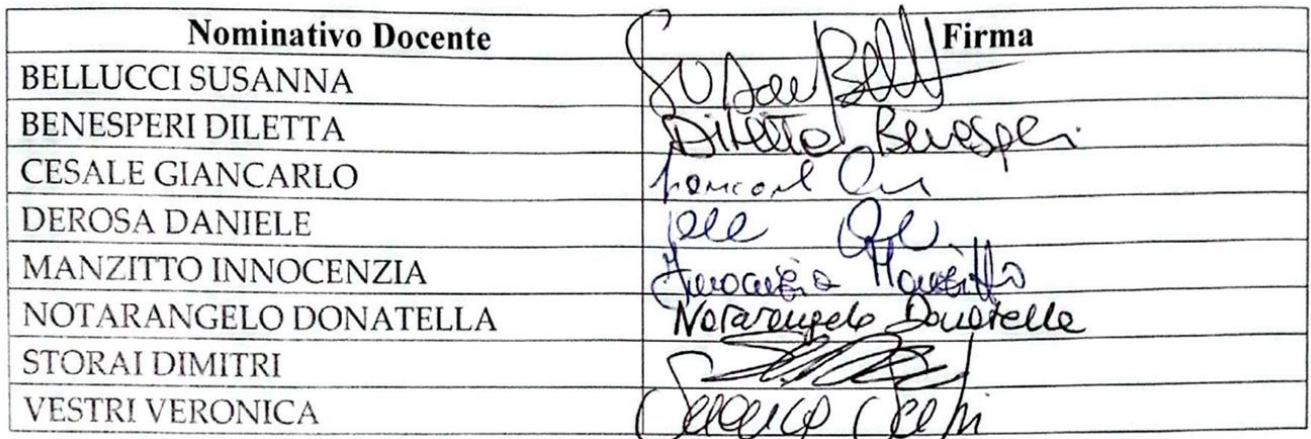 Nominativo Docente Firma
BELLUCCI SUSANNA
BENESPERI DILETTA Diletta Benesperi
CESALE GIANCARLO
DEROSA DANIELE
MANZITTO INNOCENZIA Innocenzia Manzitto
NOTARANGELO DONATELLA Notarangelo Donatella
STORAI DIMITRI
VESTRI VERONICA